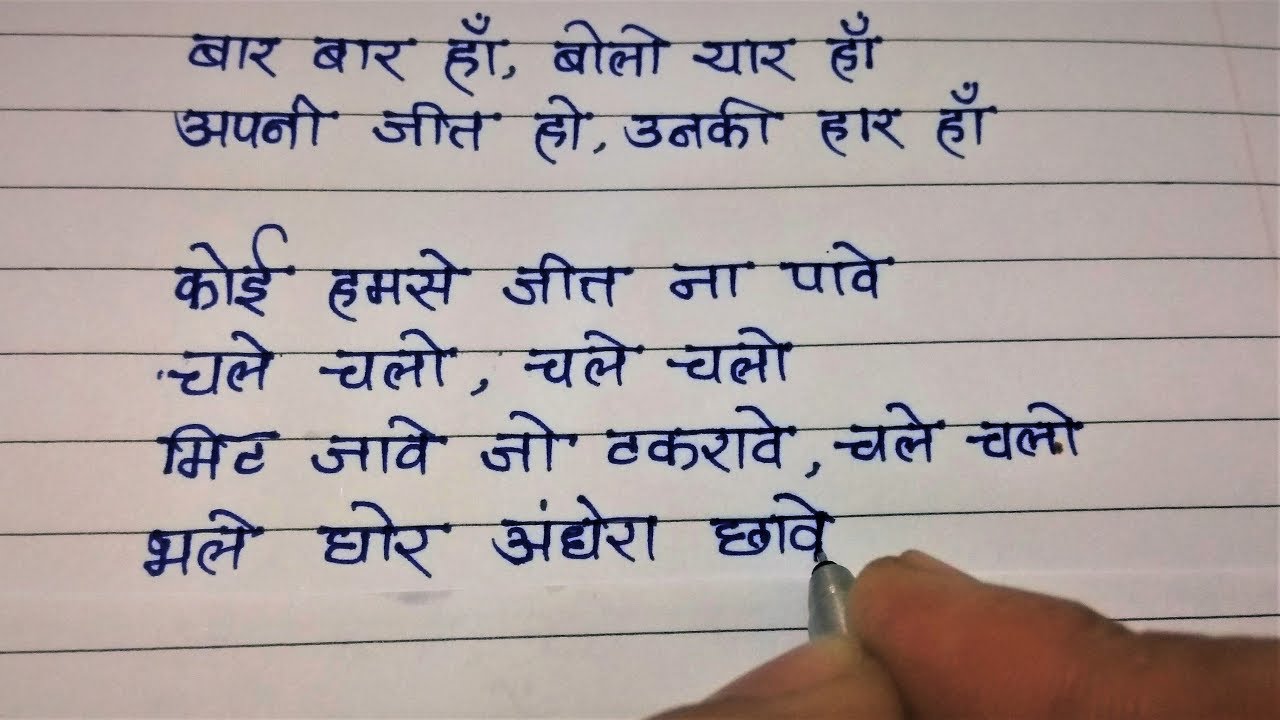 बार बार हाँ, बोलो यार हाँ
अपनी जीत हो, उनकी हार हाँ
कोई हमसे जीत ना पावे
चले चलो, चले चलो
मिट जावे जो टकरावे, चले चलो
भले घोर अंधेरा छावे